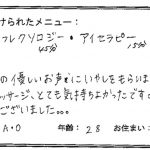 けられたメニュー：
フレクソロジー・アイセラピー
45分 15分
の優しいお声にいやしをもらいま
ッサージ、とても気持ちよかったです
ございました。。。
A・O 年齢： 28 お住まい：